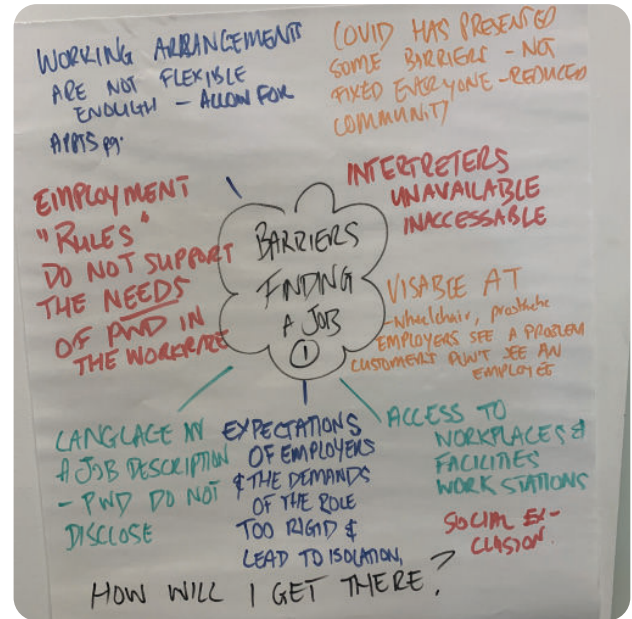 WORKING ARRANGEMENTS
ARE NOT FLEXIBLE
ENOUGH - ALLOW FOR
APPTS eg.
COVID HAS PRESENTED
SOME BARRIERS - NOT
FIXED EVERYONE - REDUCED
COMMUNITY
EMPLOYMENT
"RULES"
DO NOT SUPPORT
THE NEEDS
OF PWD IN
THE WORKPLACE
BARRIERS
FINDING
A JOB
1
INTERPRETERS
UNAVAILABLE
INACCESSABLE
VISABLE AT
- wheelchair, prosthetic
EMPLOYERS SEE A PROBLEM
CUSTOMERS DON'T SEE AN
EMPLOYEE
LANGUAGE IN
A JOB DESCRIPTION
- PWD DO NOT
DISCLOSE
EXPECTATIONS
OF EMPLOYERS
& THE DEMANDS
OF THE ROLE
TOO RIGID &
LEAD TO ISOLATION,
ACCESS TO
WORKPLACES &
FACILITIES
WORK STATIONS
SOCIAL EX-
CLUSION.
HOW WILL I GET THERE?